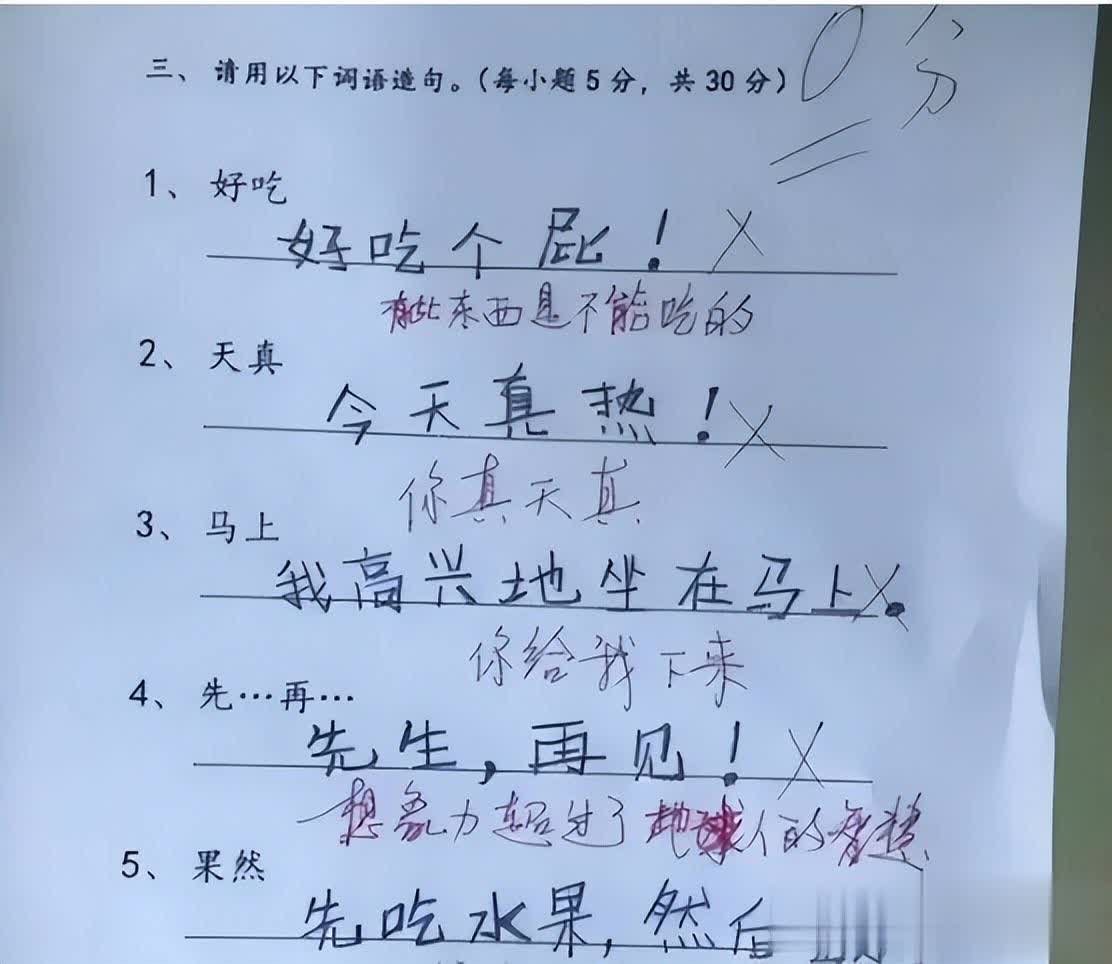 三、请用以下词语造句。(每小题5分，共30分)
0分
1、好吃
好吃个屁！
有些东西是不能吃的
2、天真
今天真热！
你真天真
3、马上
我高兴地坐在马上。
你给我下来
4、先…再…
先生，再见！
想象力超过了地球人的智慧
5、果然
先吃水果，然后